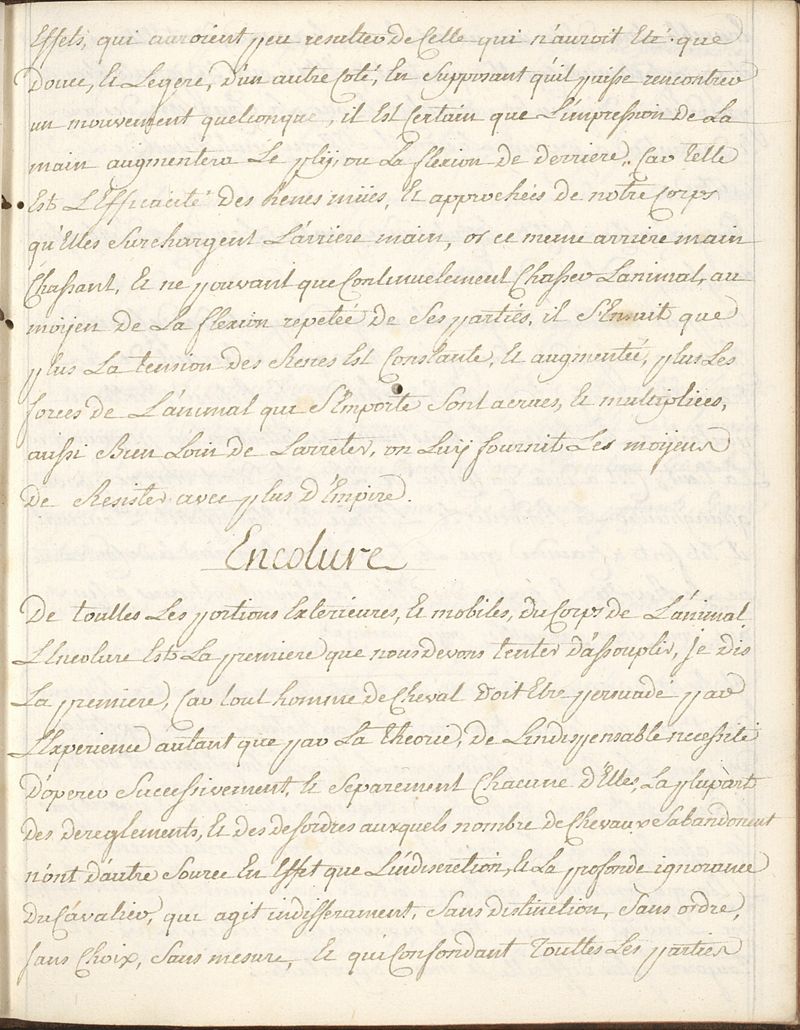 Effets, qui auroient peu resulter de Celle qui n'auroit Eté que
Douce, & Legere, D'un autre Coté, En Supposant qu'il puisse rencontrer
un mouvement quelconque, il Est Certain que L'impression de La
main augmentera Le plij, ou La flexion de derriere, Car telle
Est L'Efficacité des Renes mües, & approchées de notre Corps
qu'Elles Surchargent L'arriere main, or ce meme arriere main
Chassant, & ne pouvant que Continuelement Chasser L'animal, au
moijen de La flexion repetée de Ses parties, il S'Ensuit que
plus La tension des Renes Est Constante, & augmentée, plus Les
forces de L'animal qui S'Emporte Sont acrues, & multipliées,
aussi Bien Loin de L'arreter, on Luij fournit Les moijens
De Resister avec plus d'Empire.
Encolure
De toutles Les portions Exterieures, & mobiles, du Corps de L'animal
L'Encolure Est La premiere que nous devons tenter d'assouplir, je dis
La premiere, Car tout homme de Cheval Doit Etre persuadé par
L'Experience autant que par La theorie, de L'indispensable necessité
D'operer Successivement, & Separement Chacune d'Elles, La plupart
Des dereglements, & des desordres auxquels nombre de Chevaux S'abandonent
n'ont d'autre Source En Effet que L'indiscretion, & La profonde ignorance
Du Cavalier, qui agit indifferament, Sans distinction, Sans ordre,
Sans Choix, Sans mesure, & qui Confondant Touttes Les parties